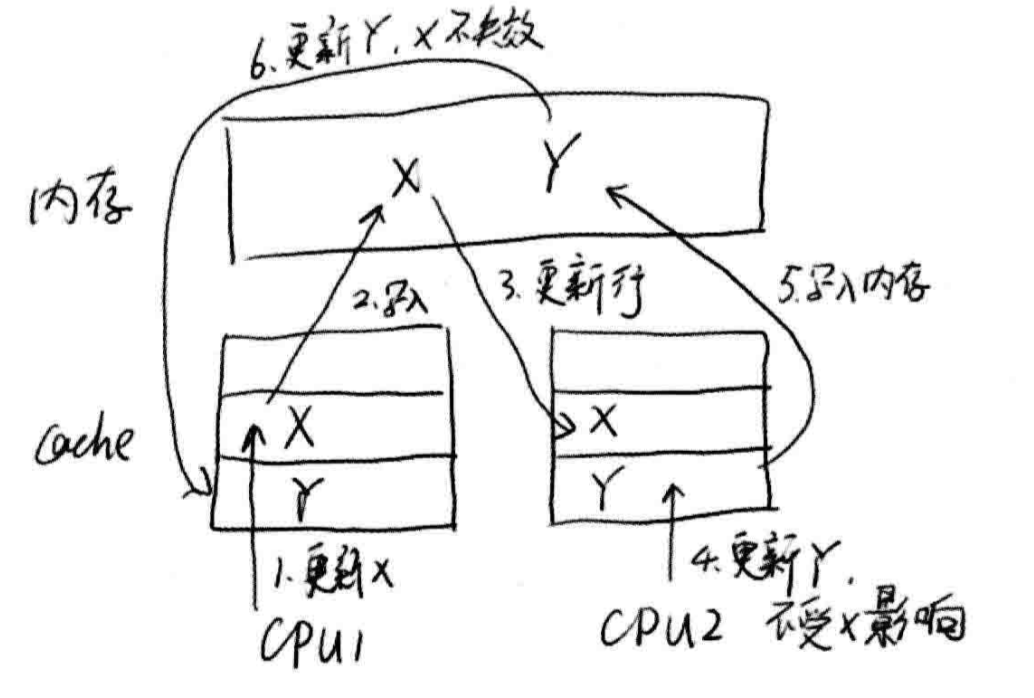 6.更新Y,X不失效
X Y
内存
2.写入
3.更新行
5.写入内存
X
X
Cache
Y
Y
1.更新X
4.更新Y,
不受X影响
CPU1
CPU2